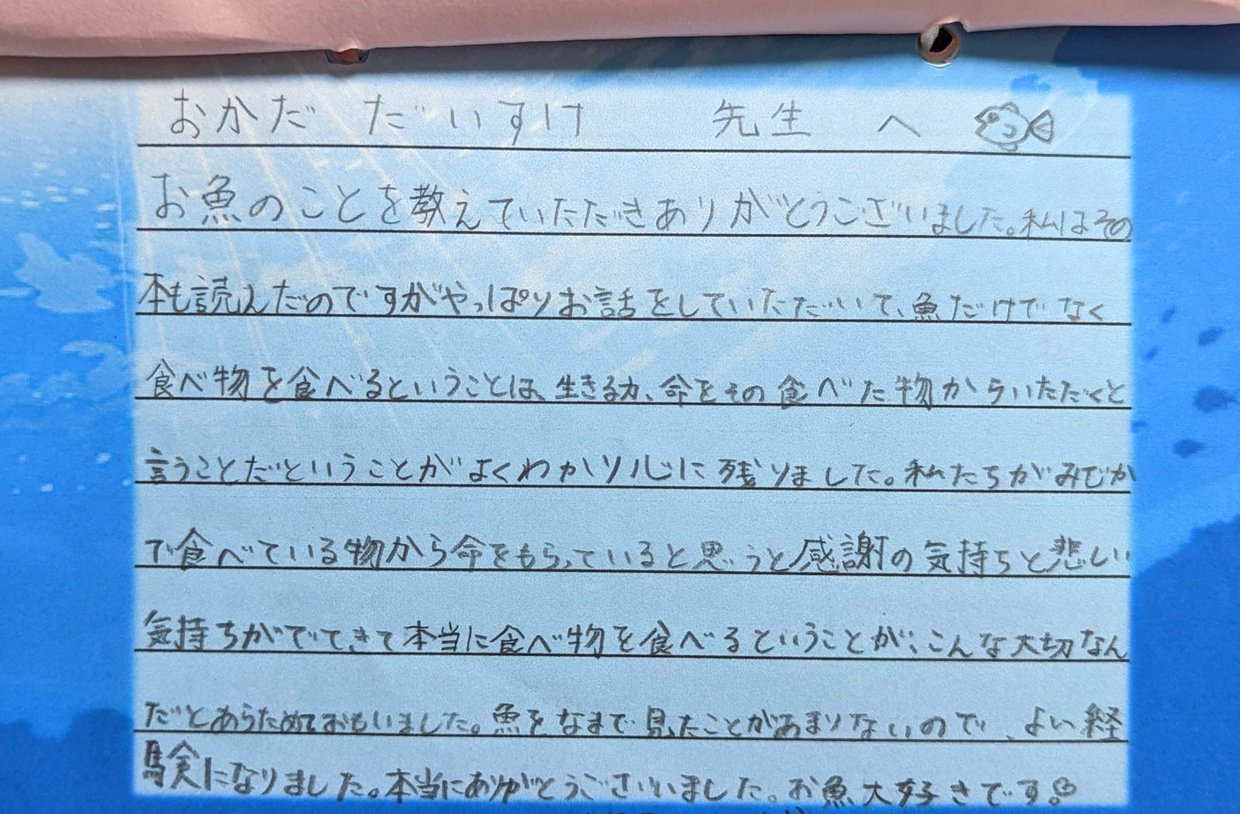 おかだ だいすけ 先生 へ
お魚のことを教えていただきありがとうございました。私はその
本も読んだのですがやっぱりお話をしていただいて、魚だけでなく
食べ物を食べるということは、生きる力、命をその食べた物からいただくと
言うことだということがよくわかり心に残りました。私たちがみぢか
で食べている物から命をもらっていると思うと感謝の気持ちと悲しい
気持ちがでてきて本当に食べ物を食べるということが、こんな大切なん
だとあらためておもいました。魚をなまで見たことがあまりないので、よい経
験になりました。本当にありがとうございました。お魚大好きです。